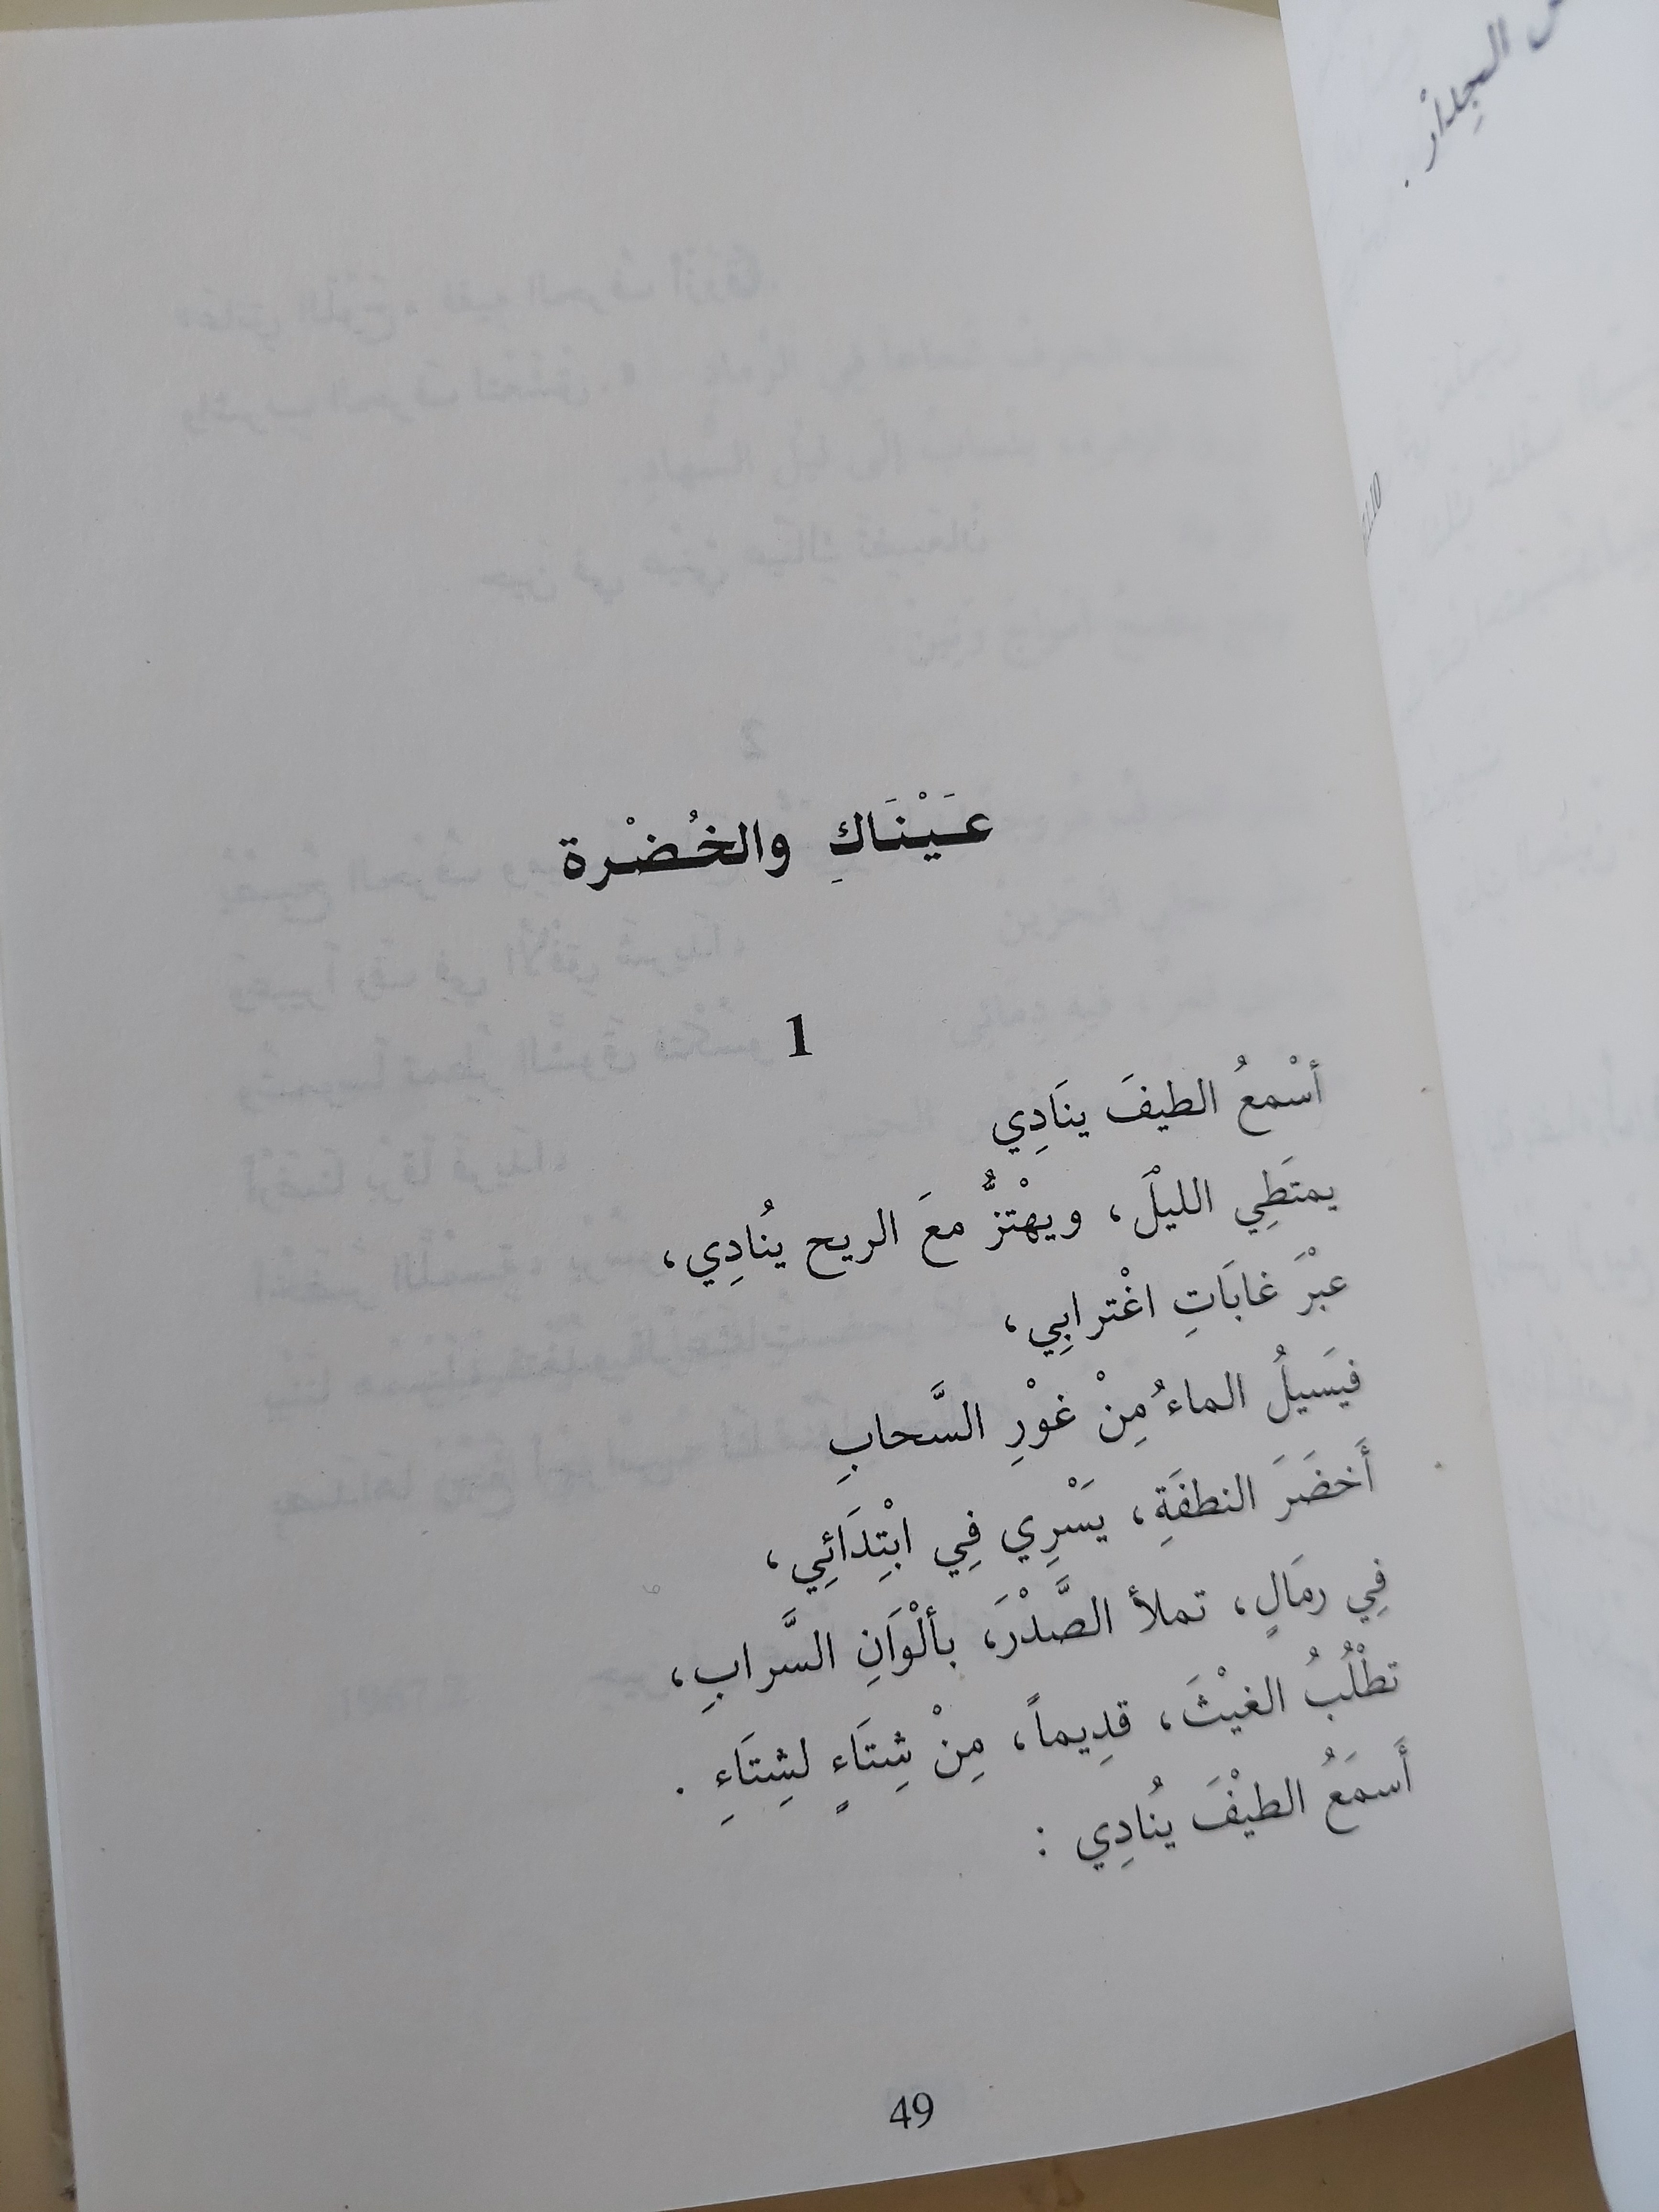 عَيْنَاكِ والخُضْرة
1
أسْمعُ الطيفَ ينَادِي
يمتَطِي الليْلَ، ويهْتزُّ معَ الريح يُنَادِي،
عبْرَ غابَاتِ اغْترابِي،
فيَسيلُ الماءُ مِنْ غوْرِ السَّحابِ
أَخضَرَ النطفَةِ، يَسْرِي فِي ابْتِدَائِي،
فِي رمَالٍ، تملأ الصَّدْرَ، بألْوَانِ السَّرابِ،
تطْلُبُ الغيْثَ، قدِيماً، مِنْ شِتَاءٍ لشِتَاءِ .
أَسمَعُ الطيْفَ يُنَادِي :
49
الجِدارْ .